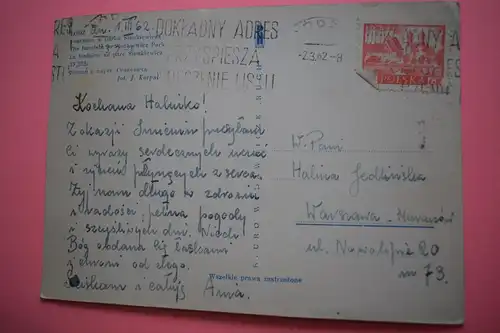 dn. 1.III.62.
DOKŁADNY ADRES
PRZYSPIESZA
DORĘCZENIE LISTU
-2.3.62.-8
Fot. J. Korpal
POLSKA
Kochana Halusko!
Z okazji Imienin przesyłam
Ci wyrazy serdecznych uczuć
i życzeń płynących z serca.
Żyj nam długo w zdrowiu
i radości, pełna pogody
i szczęśliwych dni. Niech
Bóg obdarza Cię łaskami
i chroni od złego.
Ściskam i całuję Anna.
W. Pani
Halina
Warszawa
ul. Nowolipie 20
m 73.
Wszelkie prawa zastrzeżone